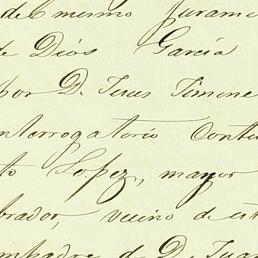 del mismo juram
de Dios Garcia
por D. Jesus Timone
nterrogatorio Conte
to Lopez, mayor
brador, vecino de est
mpadre de D. Juan